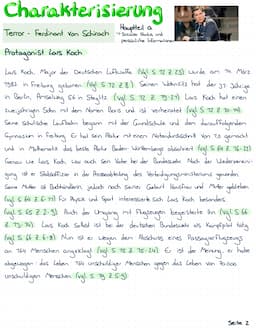 Charakterisierung
Terror - Ferdinand von Schirach
Hauptteil a
→ Soziale Rolle und
persönliche Informationen
Protagonist Lars Koch
Lars Koch, Major der Deutschen Luftwaffe (Vgl. S. 12 Z. wurde am 14. März
1982 in Freiburg geboren (Vgl. S. 12 Z. 8). Seinen Wohnsitz hat der 31 Jährige
in Berlin, Amselweg 56 in Steglitz (Vgl. S. 12 Z. Lars Koch hat einen
zweijährigen Sohn mit dem Namen Boris und ist verheiratet (Vgl. S.
Seine schulische Laufbahn begann mit der Grundschule und dem darauffolgenden
Gymnasium in Freiburg. Er hat sein Abitur mit einem Notendurchschnitt von 1,0 gemacht
und in Mathematik das beste Abitur Baden-Württembergs absolviert (Vgl. S. 64 Z.
Genau wie Lars Koch, war auch sein Vater bei der Bundeswehr. Nach der Wiedervereini-
gung ist er Stabsoffizier in der Presseabteilung des Verteidigungsministeriums geworden.
Seine Mutter ist Buchhändlerin, jedoch nach seiner Geburt Hausfrau und Mutter geblieben
(Vgl. S. 64 Z. Für Physik und Sport interessierte sich Lars Koch besonders
(Vgl. S. 65 Z. Auch der Umgang mit Flugzeugen begeisterte ihn (Vgl. S. 66
Z. Lars Koch selbst ist bei der deutschen Bundeswehr als Kampfpilot tätig
(Vgl. S. 66 Z. 6-8). Nun ist er wegen dem Abschuss eines Passagierflugzeugs
an 164 Menschen angeklagt (Vgl. S. 12 Z. Er ist der Meinung, er habe
abgewogen das Leben 164 unschuldiger Menschen gegen das Leben von 70.000
unschuldigen Menschen (Vgl. S. 79 Z. 5-9).
Seite 2